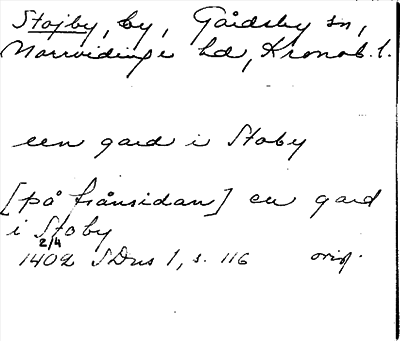 Stojby, by, Gårdsby sn,
Norrvidinge hd, Kronob. l.
een gard i Stoby
[på frånsidan] en gard
i Stoby
2/4
1402 SDns 1, s. 116 orig.